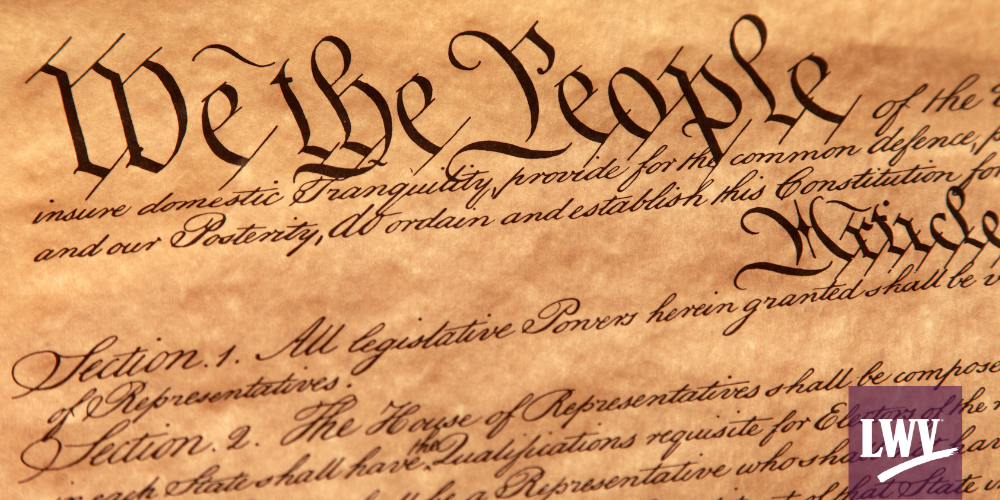 We the People of the
insure domestic Tranquility, provide for the common defence,
and our Posterity, do ordain and establish this Constitution for
Article
Section. 1. All legislative Powers herein granted shall be
of Representatives.
Section. 2. The House of Representatives shall be compose
the
in each State shall have Qualifications requisite for Electors of the
shall be a Representative who shall
that State
LWV